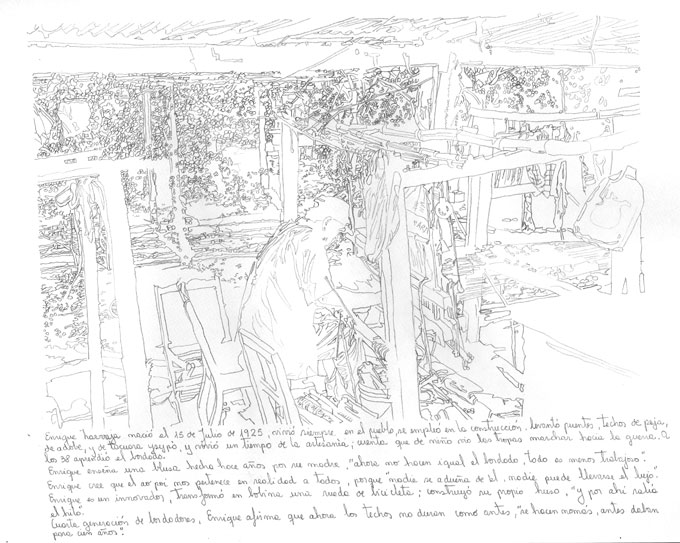 Enrique nació el 15 de Julio de 1925, vivió siempre en el pueblo, se empleó en la construcción, levantó puentes, techos de paja,
de adobe, y de tacuara ysypó, y vivió un tiempo de la artesanía; cuenta que de niño vio las tropas marchar hacia la guerra. A
los 38 aprendió el bordado.
Enrique enseña una blusa hecha hace años por su madre, "ahora no hacen igual el bordado, todo es menos trabajoso".
Enrique cree que el ao po'i nos pertenece en realidad a todos, porque nadie se adueña de él, nadie puede llevarse el lujo".
Enrique es un innovador, transformó en bobina una rueda de bicicleta; construyó su propio huso, "y por ahí salía
el hilo".
Cuarta generación de bordadores, Enrique afirma que ahora los techos no duran como antes, "se hacen nomás, antes daban
para cien años".